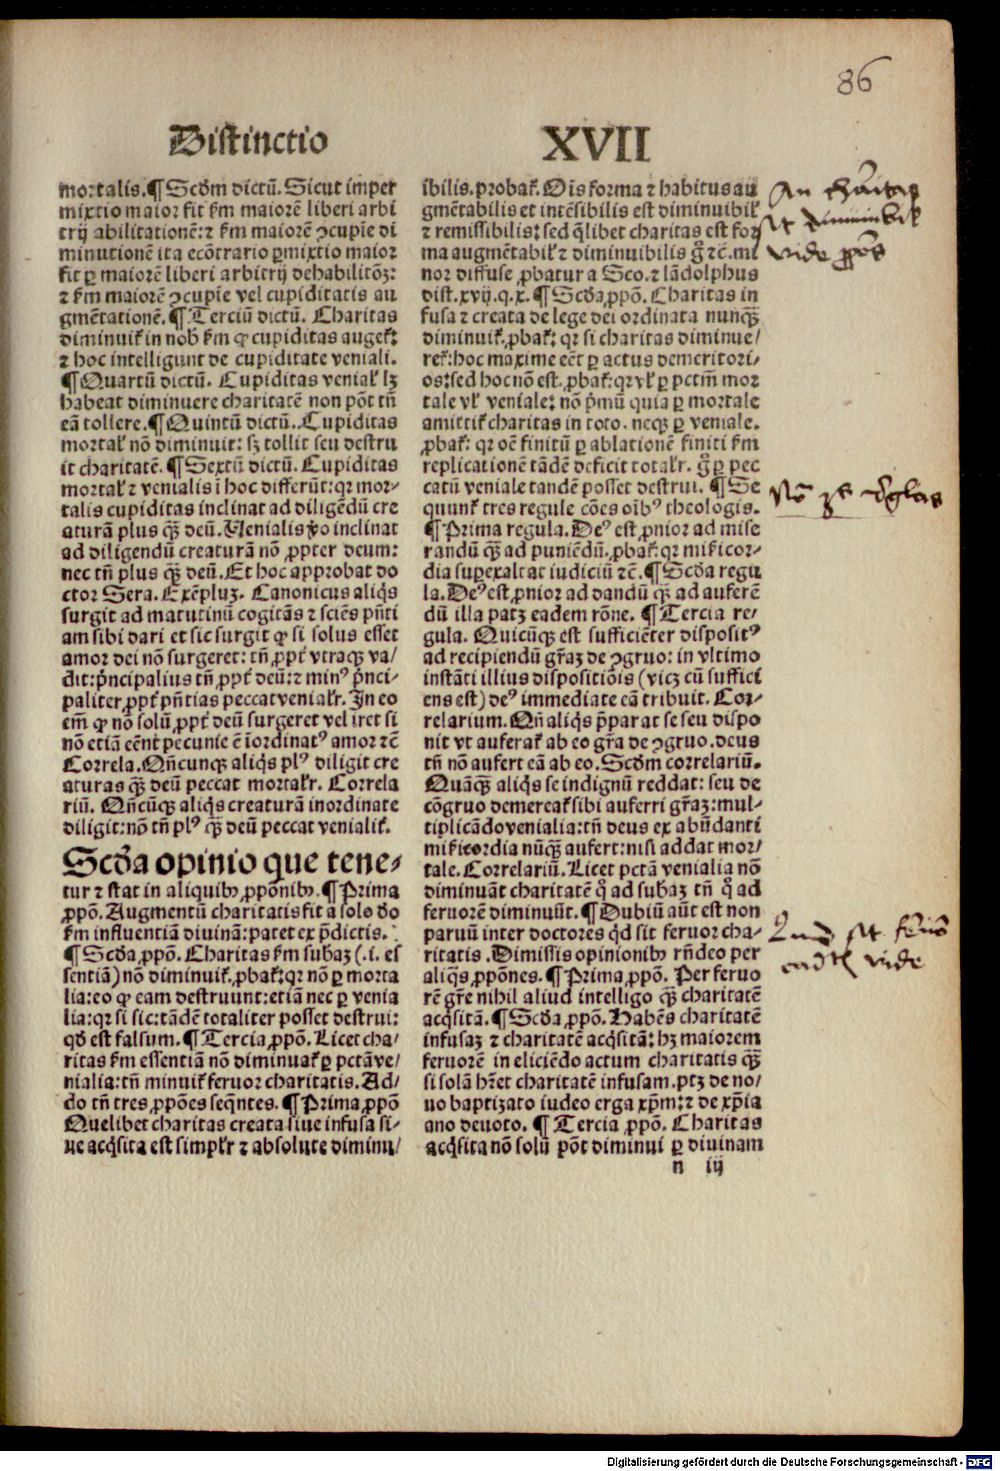 86
Distinctio XVII
mortalis.¶Scd̄m dictū. Sicut imper
mixtio maior fit ẜm maiorē liberi arbi
trij abilitationē: ⁊ ẜm maiorē ꝯcupie di
minutionē ita ecōtrario ꝑmixtio maior
fit ꝑ maiorē liberi arbitrij dehabilitōꝫ:
⁊ ẜm maiorē ꝯcupie vel cupiditatis au
gmētationē.¶Terciū dictū. Charitas
diminuit᷑ in nob̄ ẜm ꝙ cupiditas auget᷑:
⁊ hoc intelligunt de cupiditate veniali.
¶Quartū dictū. Cupiditas venial᷑ lꝫ
habeat diminuere charitatē non pōt tn̄
eā tollere.¶Quintū dictū. Cupiditas
mortal᷑ nō diminuit: sꝫ tollit seu destru
it charitatē.¶Sextū dictū. Cupiditas
mortal᷑ ⁊ venialis ī hoc differūt: qꝛ mor-
talis cupiditas inclinat ad diligēdū cre
aturā plus qꝫ̄ deū. Uenialis ꝟo inclinat
ad diligendū creaturā nō ꝓpter deum:
nec tn̄ plus qꝫ̄ deū. Et hoc approbat do
ctor Sera. Exēpluꝫ. Canonicus aliqͥs
surgit ad matutinū cogitās ⁊ sciēs pn̄ti
am sibi dari et sic surgit ꝙ si solus esset
amor dei nō surgeret: tn̄ ꝓpt᷑ vtraqꝫ va/
dit: pͥncipalius tn̄ ꝓpt᷑ deū: ⁊ minꝰ pͥnci-
paliter ꝓpt᷑ pn̄tias peccat venialr̄. In eo
em̄ ꝙ nō solū ꝓpt᷑ deū surgeret vel iret si
nō etiā eēnt pecunie ē īordinatꝰ amor ⁊c̄
Correla. Qn̄cunqꝫ aliqͥs plꝰ diligit cre
aturas qꝫ̄ deū peccat mortalr̄. Correla
riū. Qn̄cūqꝫ aliqͥs creaturā inordinate
diligit: nō tn̄ plꝰ qꝫ̄ deū peccat venialit᷑.
Scd̄a opinio que tene-
tur ⁊ stat in aliquibꝫ ꝓpōnibꝫ.¶Prima
ꝓpō. Augmentū charitatis fit a solo do
ẜm influentiā diuinā: patet ex p̄dictis.
¶Scd̄a ꝓpō. Charitas ẜm subaꝫ (.i. es
sentiā) nō diminuit᷑. ꝓbat᷑: qꝛ nō ꝑ morta
lia: eo ꝙ eam destruunt: etiā nec ꝑ venia
lia: qꝛ si sic: tādē totaliter posset destrui:
qd̄ est falsum.¶Tercia ꝓpō. Licet cha/
ritas ẜm essentiā nō diminuat᷑ ꝑ pctā ve/
nialia: tn̄ minuit᷑ feruor charitatis. Ad/
do tn̄ tres ꝓpōes seqn̄tes.¶Prima ꝓpō
Quelibet charitas creata siue infusa si-
ue acqͥsita est simplr̄ ⁊ absolute diminu/
ibilis. probat᷑. Oīs forma ⁊ habitus au
gmētabilis et intēsibilis est diminuibil᷑
⁊ remissibilis: sed qͥlibet charitas est for
ma augmētabil᷑ ⁊ diminuibilis g̊ ⁊c̄. mi
nor diffuse ꝓbatur a Sco. ⁊ lādolphus
dist.xvij.q.x.¶Scd̄a ꝓpō. Charitas in
fusa ⁊ creata de lege dei ordinata nunqꝫ̄
diminuit᷑. ꝓbat᷑: qꝛ si charitas diminue/
ret᷑: hoc maxime eēt ꝑ actus demeritori-
os: sed hoc nō est. ꝓbat᷑: qꝛ vl᷑ ꝑ pctm̄ mor
tale vl᷑ veniale: nō pͥmū quia ꝑ mortale
amittit᷑ charitas in toto. neqꝫ ꝑ veniale.
ꝓbat᷑: qꝛ oē finitū ꝑ ablationē finiti ẜm
replicationē tādē deficit totalr̄. g̊ ꝑ pec
catū veniale tandē posset destrui.¶Se
quunt᷑ tres regule cōes oībꝰ theologis.
¶Prima regula. Deꝰ est ꝓnior ad mise
randū qꝫ̄ ad puniēdū. ꝓbat᷑: qꝛ mīsericor-
dia suꝑexaltat iudiciū ⁊c̄.¶Scd̄a regu
la. Deꝰ est ꝓnior ad dandū qꝫ̄ ad auferē
dū illa patꝫ eadem rōne.¶Tercia re/
gula. Quicūqꝫ est sufficiēter dispositꝰ
ad recipiendū gr̄aꝫ de ꝯgruo: in vltimo
instāti illius dispositiōis (vicꝫ cū suffici
ens est) deꝰ immediate eā tribuit. Cor-
relarium. Qn̄ aliqͥs p̄parat se seu dispo
nit vt auferat᷑ ab eo gr̄a de ꝯgruo. deus
tn̄ nō aufert eā ab eo. Scd̄m correlariū.
Quāqꝫ̄ aliqͥs se indignū reddat: seu de
cōgruo demereat᷑ sibi auferri gr̄aꝫ: mul-
tiplicādo venialia: tn̄ deus ex abūdanti
mīsericordia nūqꝫ̄ aufert: nisi addat mor/
tale. Correlariū. Licet pctā venialia nō
diminuāt charitatē qͦ ad subaꝫ tn̄ qͦ ad
feruorē diminuūt.¶Dubiū aūt est non
paruū inter doctores qͥd sit feruor cha-
ritatis. Dimissis opinionibꝫ rn̄deo per
aliqͥs ꝓpōnes.¶Prima ꝓpō. Per feruo
rē gr̄e nihil aliud intelligo qꝫ̄ charitatē
acqͥsitā.¶Scd̄a ꝓpō. Habēs charitatē
infusaꝫ ⁊ charitatē acqͥsitā: hꝫ maiorem
feruorē in eliciēdo actum charitatis qꝫ̄
si solā hr̄et charitatē infusam. ptꝫ de no/
uo baptizato iudeo erga xp̄m: ⁊ de xp̄ia
ano deuoto.¶Tercia ꝓpō. Charitas
acqͥsita nō solū pōt diminui ꝑ diuinam
n iij
An charitas
sit diminibil᷑
vide ꝓpōes
Nō 3es regulas
Quid sit feruor
vide
Digitalisierung gefördert durch die Deutsche Forschungsgemeinschaft - DFG